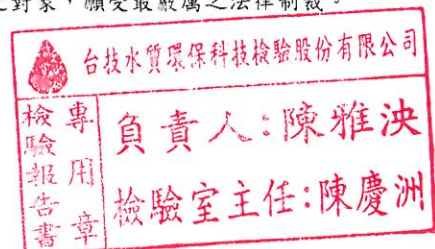 之對象，願受最嚴厲之法律制裁。
台技水質環保科技檢驗股份有限公司
檢驗報告書
專用章
負責人：陳雅泱
檢驗室主任：陳慶洲